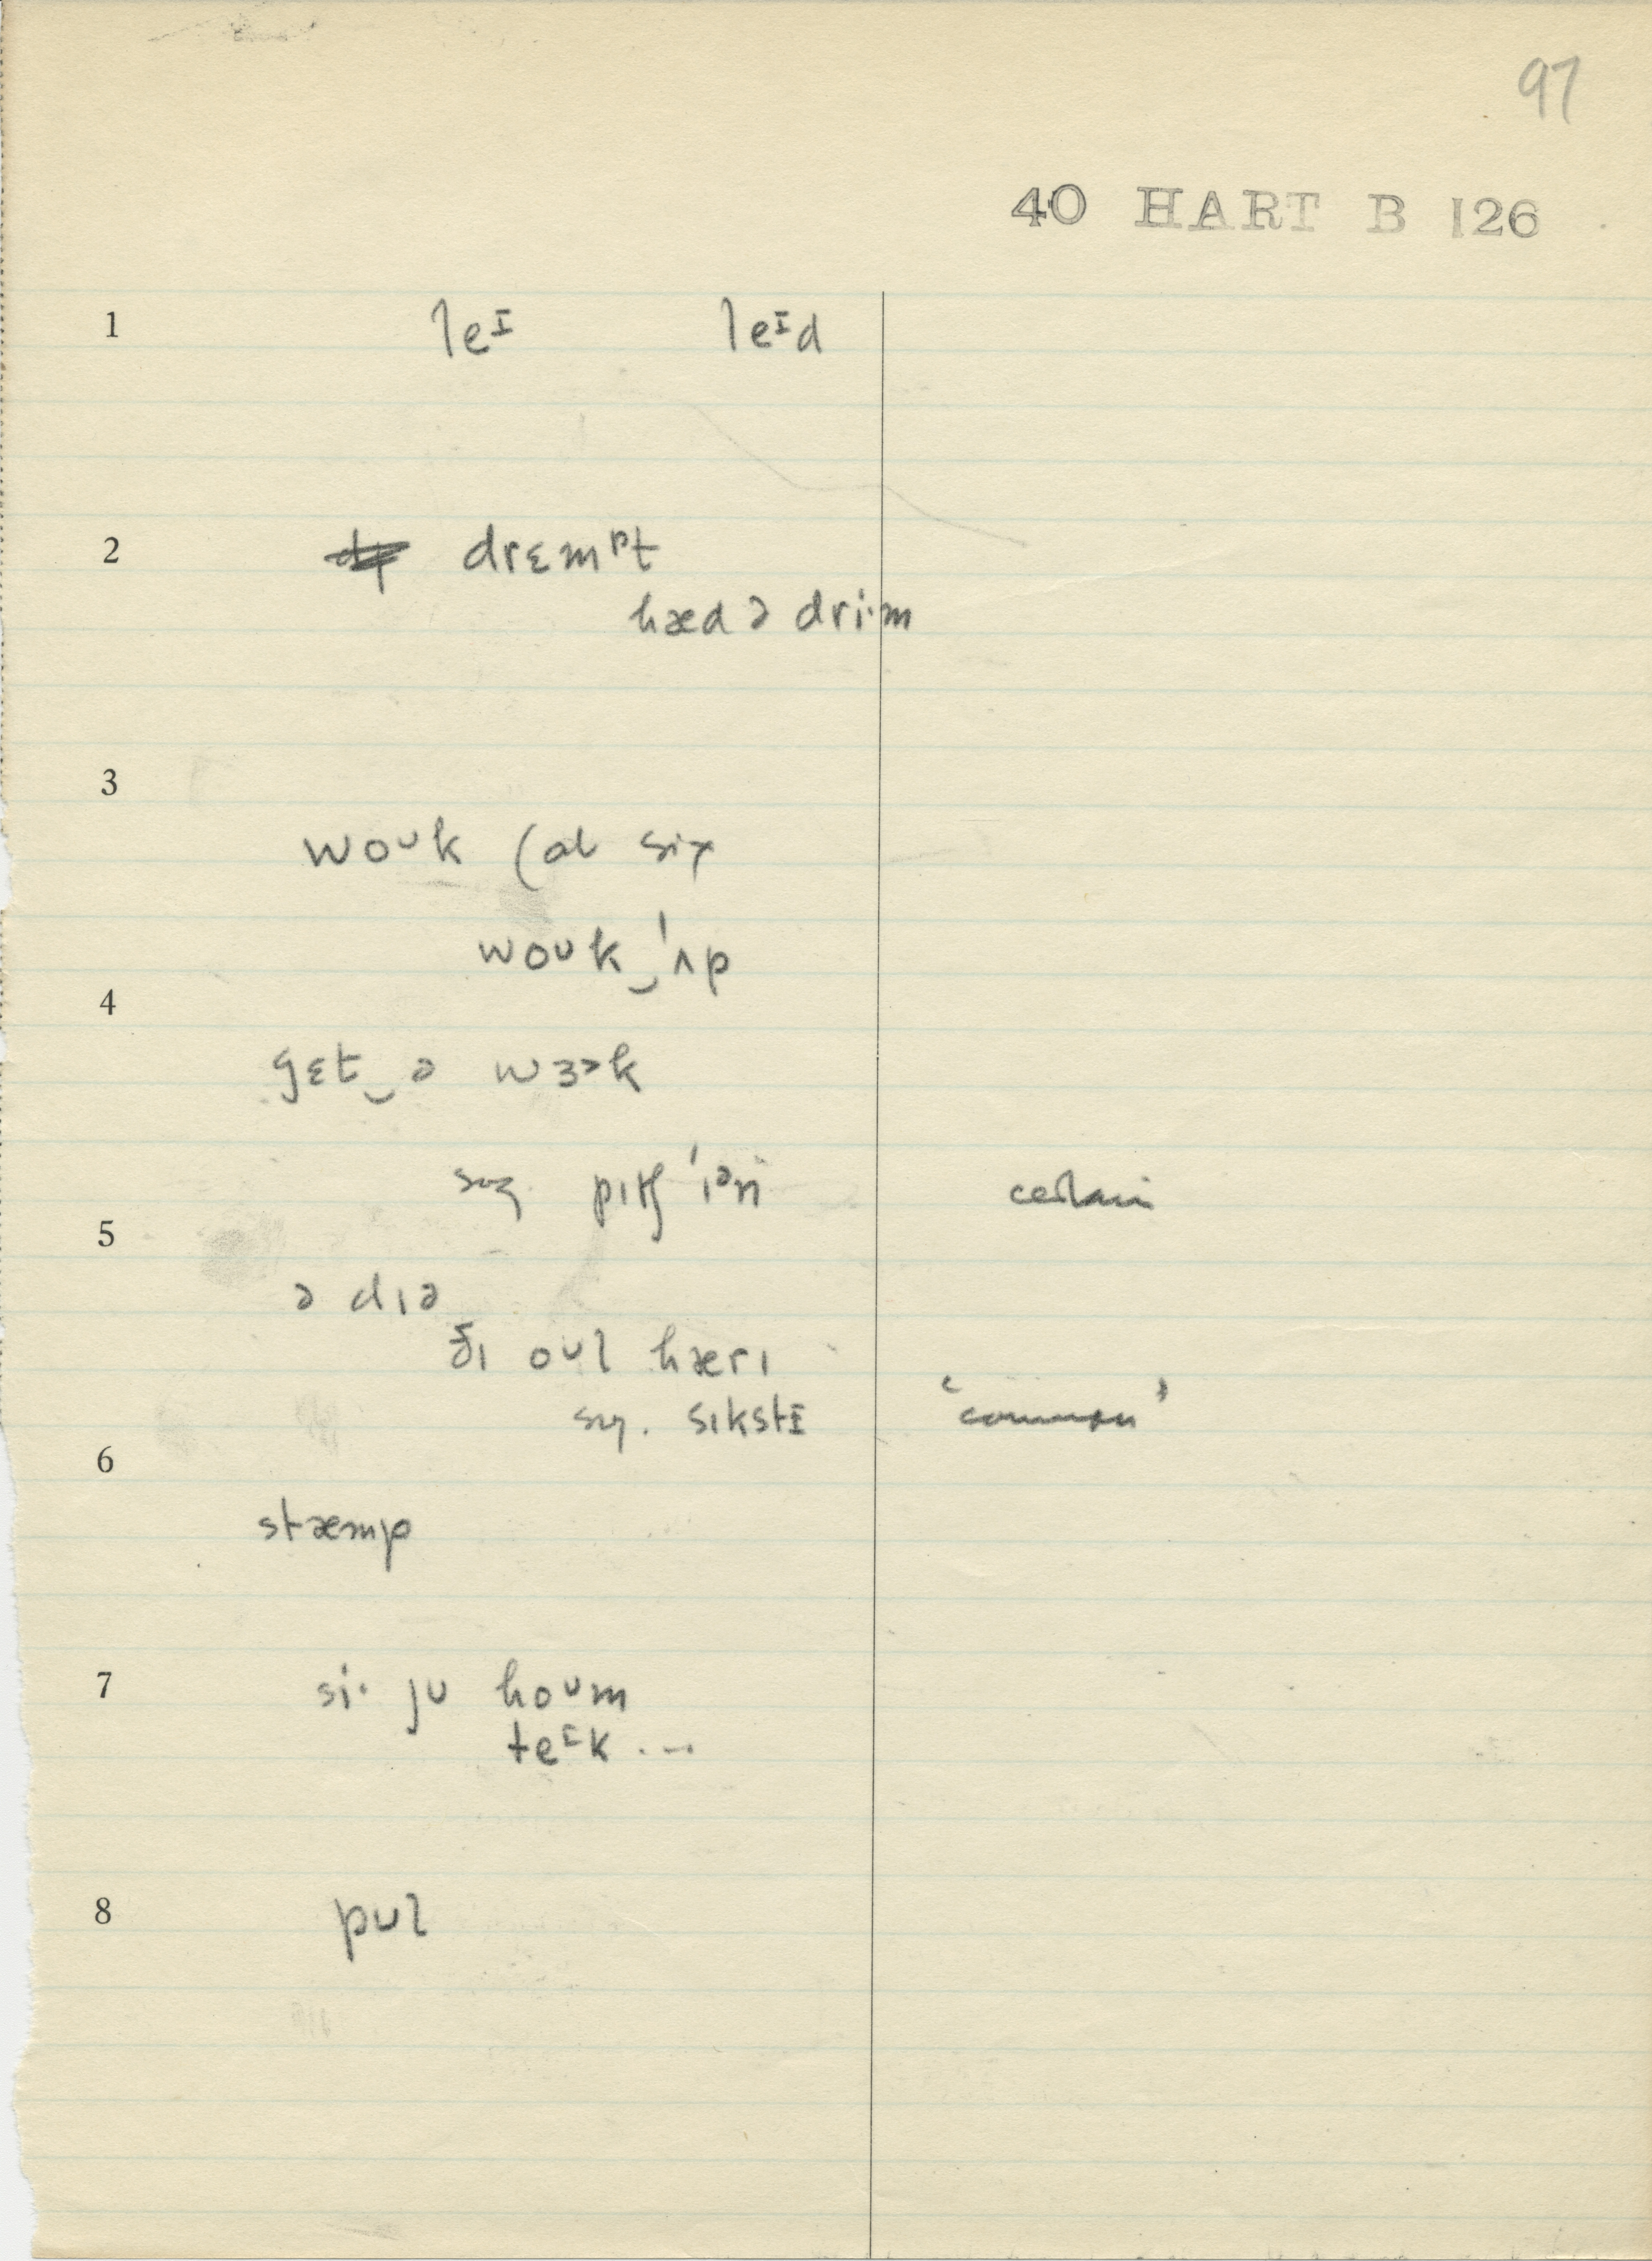 97
40 HART B 126
1 leᴵ leᴵd
2 drɛmᵖt
hæd ə dri·m
3
woᴜk (at six
woᴜk‿ˈʌp
4
gɛt‿ə wɜək
sug. pɪtʃˈɪən certain
5
ə dɪə
ðɪ oᴜl hærɪ
sug. sɪkstɪ ‘common’
6
stæmp
7 si· jᴜ hoᴜm
teᴵk ...
8 pᴜl